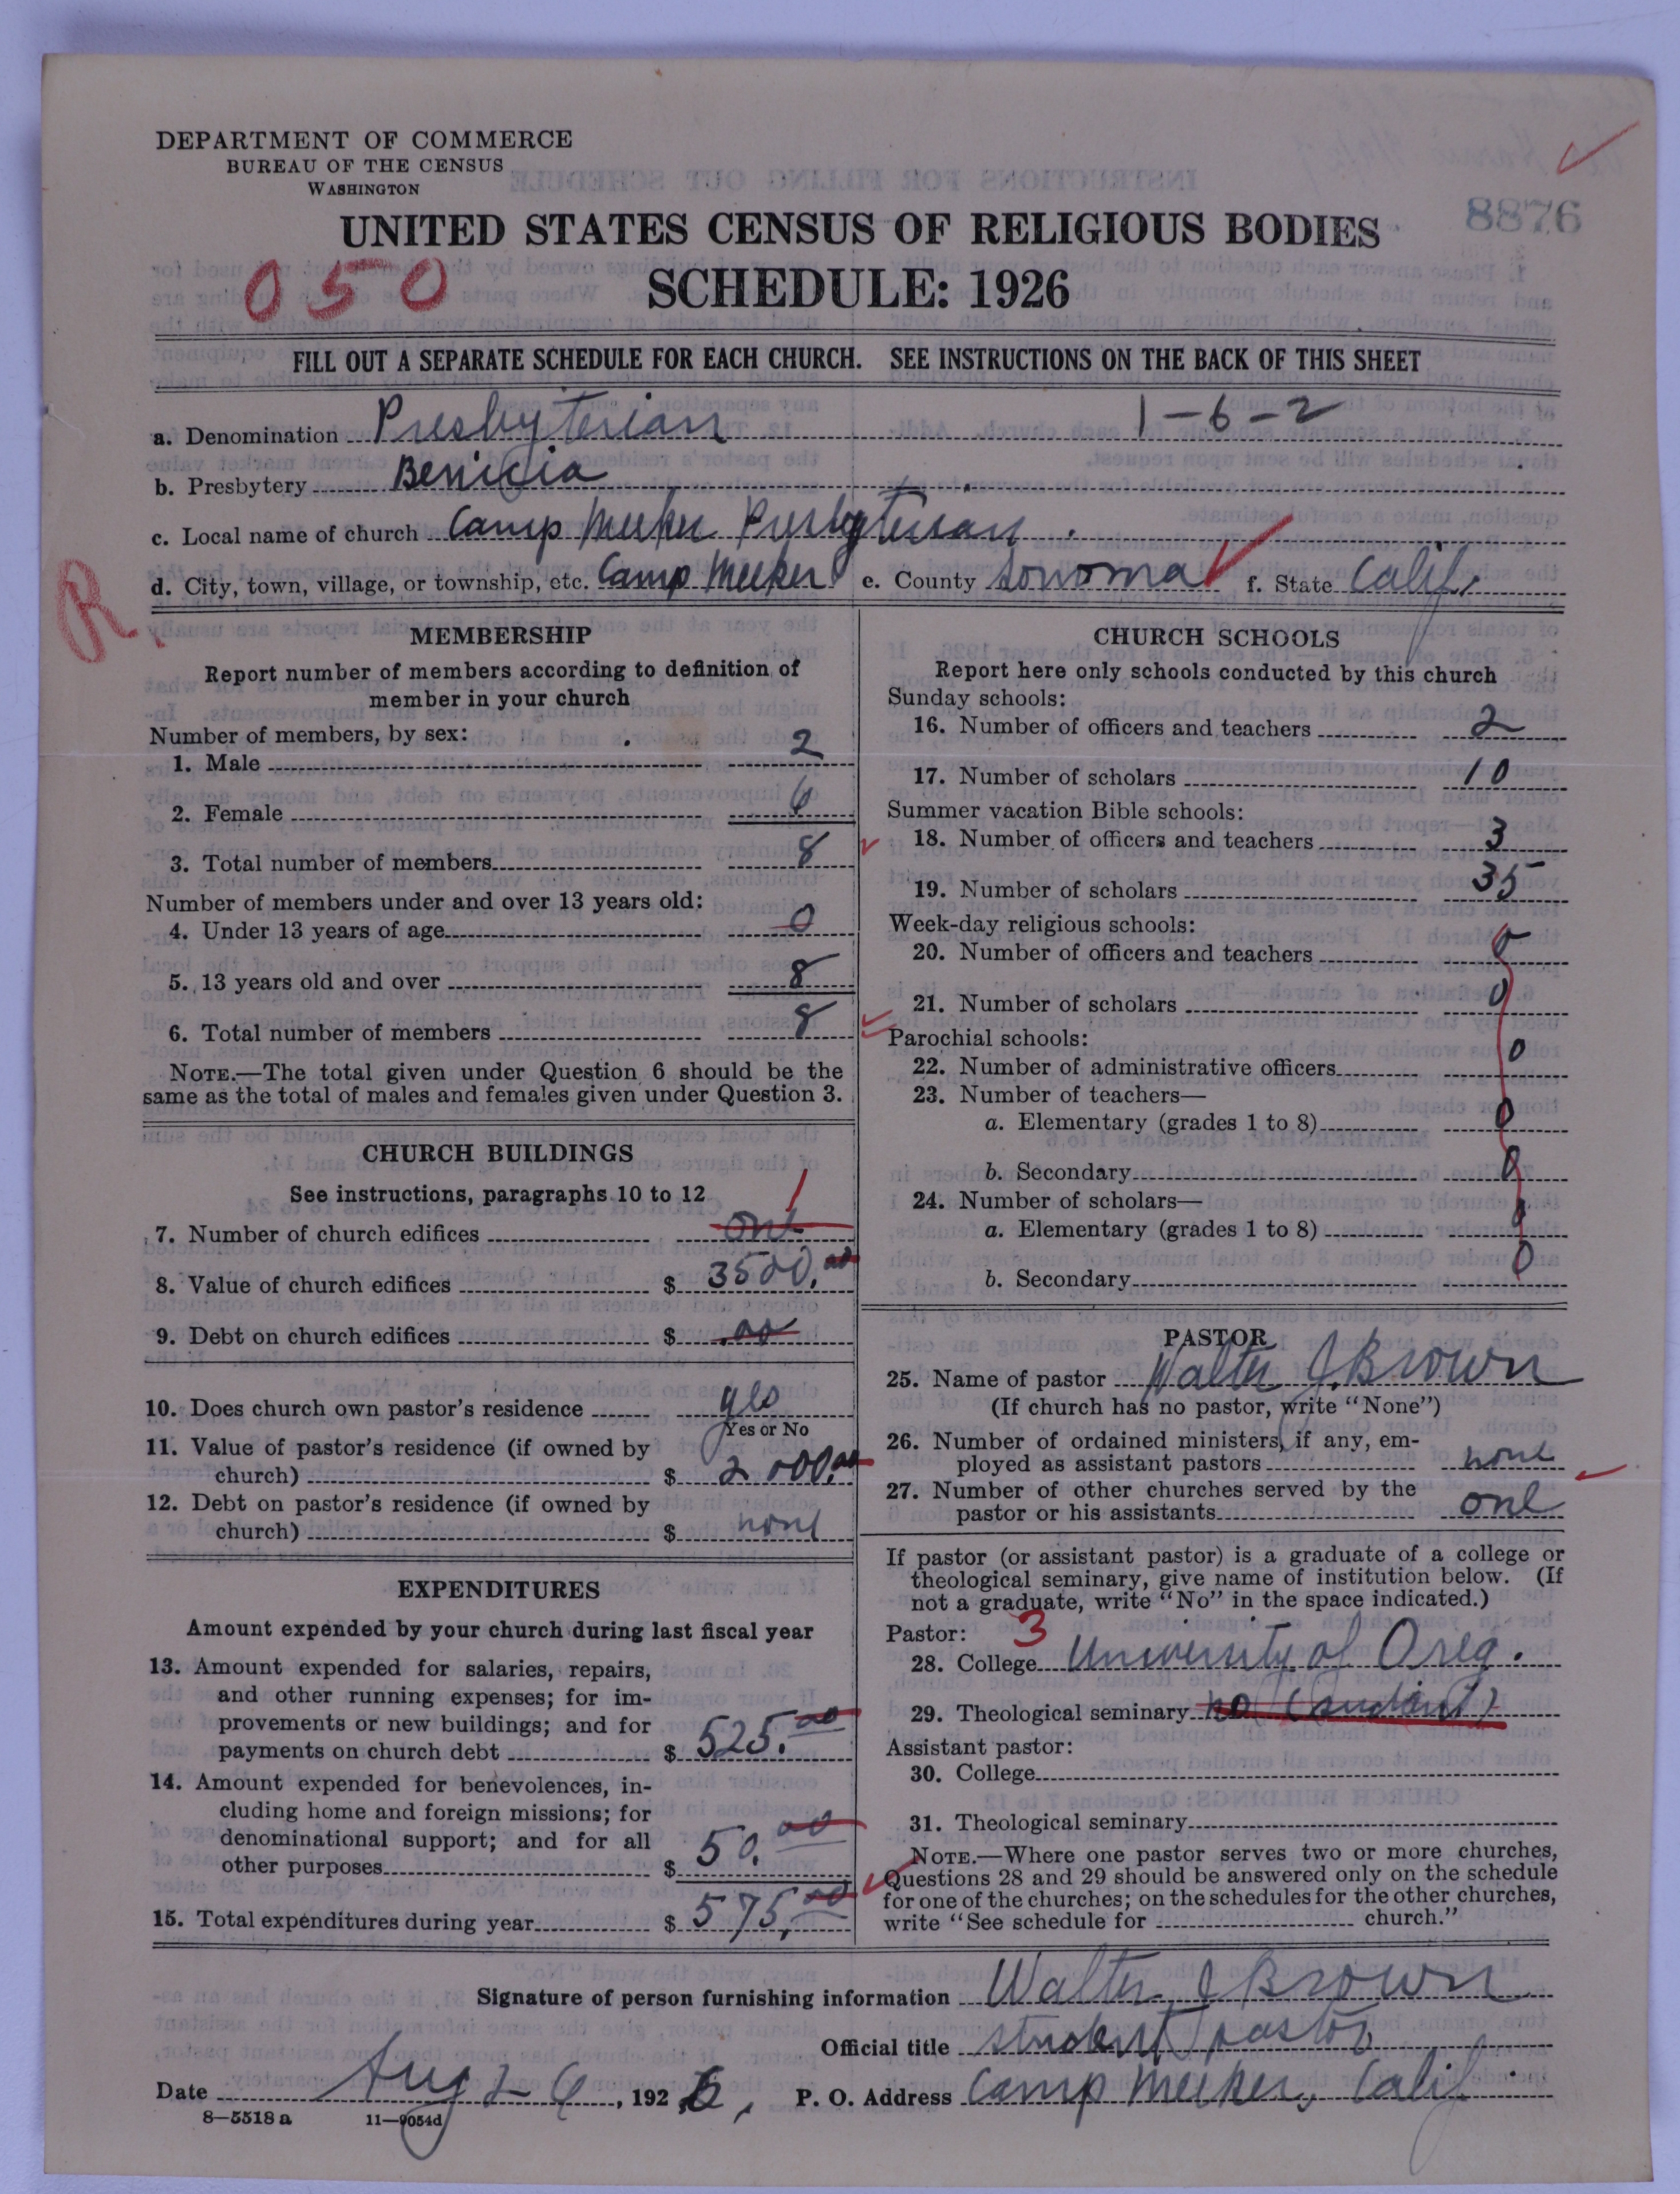 DEPARTMENT OF COMMERCE
BUREAU OF THE CENSUS
WASHINGTON
8876
UNITED STATES CENSUS OF RELIGIOUS BODIES
SCHEDULE: 1926
050
FILL OUT A SEPARATE SCHEDULE FOR EACH CHURCH. SEE INSTRUCTIONS ON THE BACK OF THIS SHEET
a. Denomination Presbyterian 1-6-2
b. Presbytery Benicia
c. Local name of church Camp Meeker Presbyterian.
d. City, town, village, or township, etc. Camp Meeker e. County Sonoma f. State Calif.
R
MEMBERSHIP
Report number of members according to definition of
member in your church
Number of members, by sex:
1. Male 2
2. Female 6
3. Total number of members 8
Number of members under and over 13 years old:
4. Under 13 years of age 0
5. 13 years old and over 8
6. Total number of members 8
NOTE.—The total given under Question 6 should be the
same as the total of males and females given under Question 3.
CHURCH BUILDINGS
See instructions, paragraphs 10 to 12
7. Number of church edifices one 1
8. Value of church edifices $ 3500.00
9. Debt on church edifices $ .00
10. Does church own pastor's residence yes
Yes or No
11. Value of pastor's residence (if owned by
church) $ 2000.00
12. Debt on pastor's residence (if owned by
church) $ none
EXPENDITURES
Amount expended by your church during last fiscal year
13. Amount expended for salaries, repairs,
and other running expenses; for im-
provements or new buildings; and for
payments on church debt $ 525.00
14. Amount expended for benevolences, in-
cluding home and foreign missions; for
denominational support; and for all
other purposes $ 50.00
15. Total expenditures during year $ 575.00
CHURCH SCHOOLS
Report here only schools conducted by this church
Sunday schools:
16. Number of officers and teachers 2
17. Number of scholars 10
Summer vacation Bible schools:
18. Number of officers and teachers 3
19. Number of scholars 35
Week-day religious schools:
20. Number of officers and teachers 0
21. Number of scholars 0
Parochial schools:
22. Number of administrative officers 0
23. Number of teachers—
a. Elementary (grades 1 to 8) 0
b. Secondary 0
24. Number of scholars—
a. Elementary (grades 1 to 8) 0
b. Secondary 0
PASTOR
25. Name of pastor Walter J. Brown
(If church has no pastor, write "None")
26. Number of ordained ministers, if any, em-
ployed as assistant pastors none
27. Number of other churches served by the
pastor or his assistants one
If pastor (or assistant pastor) is a graduate of a college or
theological seminary, give name of institution below. (If
not a graduate, write "No" in the space indicated.)
Pastor: 3
28. College University of Oreg.
29. Theological seminary no (student)
Assistant pastor:
30. College
31. Theological seminary
NOTE.—Where one pastor serves two or more churches,
Questions 28 and 29 should be answered only on the schedule
for one of the churches; on the schedules for the other churches,
write "See schedule for church."
Signature of person furnishing information Walter J Brown
Official title student pastor
Date Aug 26, 1926. P. O. Address Camp Meeker, Calif.
8-5518a 11-9054d